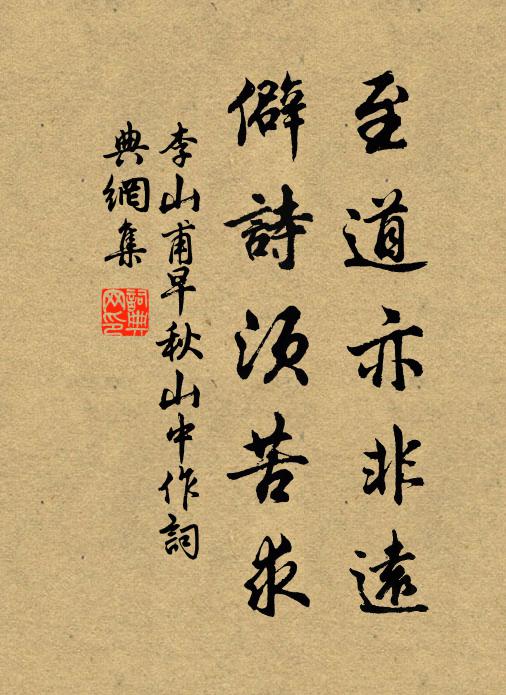 至道亦非遠
僻詩須苦求
李山甫早秋山中作詞
典網集
詞典網印